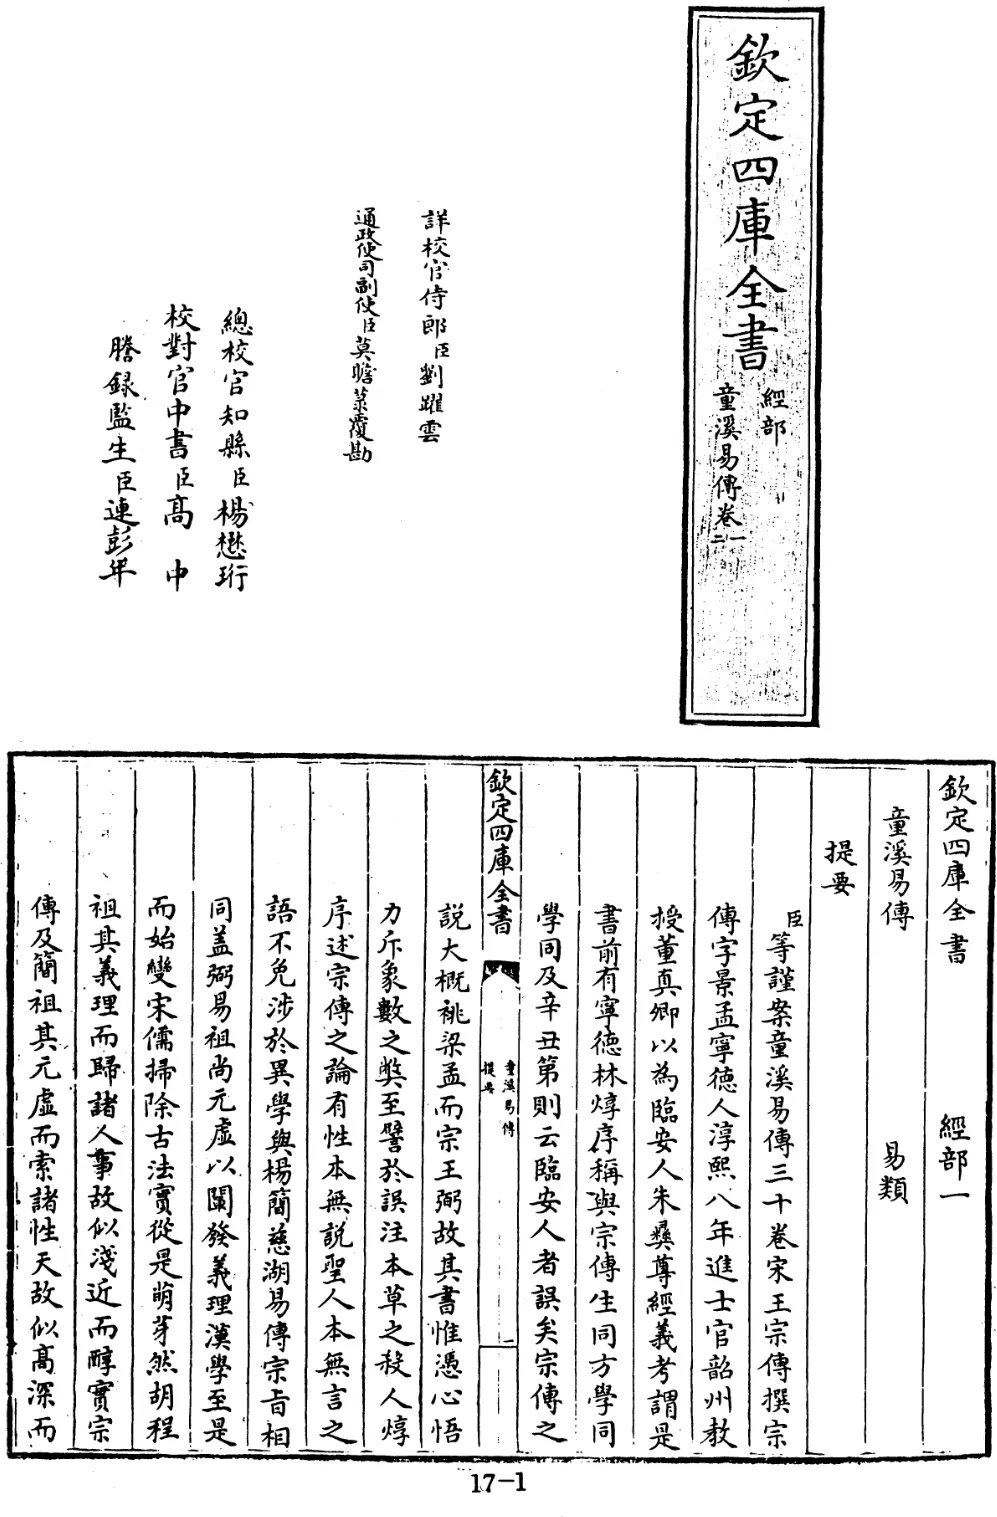 欽定四庫全書
經部
童溪易傳卷一
二
詳校官侍郎臣劉躍雲
通政使司副使臣莫瞻菉覆勘
總校官知縣臣楊懋珩
校對官中書臣高中
謄録監生臣連彭年
欽定四庫全書 經部一
童溪易傳 易類
提要
臣等謹案童溪易傳三十卷宋王宗傳撰宗
傳字景孟寧德人淳熙八年進士官韶州教
授董真卿以為臨安人朱彝尊經義考謂是
書前有寧德林焞序稱與宗傳生同方學同
學同及辛丑第則云臨安人者誤矣宗傳之
欽定四庫全書
童溪易傳
提要
一
説大概祧梁孟而宗王弼故其書惟憑心悟
力斥象數之弊至譬於誤注本草之殺人焞
序述宗傳之論有性本無説聖人本無言之
語不免涉於異學與楊簡慈湖易傳宗旨相
同盖弼易祖尚元虛以闡發義理漢學至是
而始變宋儒掃除古法實從是萌芽然胡程
祖其義理而歸諸人事故似淺近而醇實宗
傳及簡祖其元虛而索諸性天故似高深而
17-1